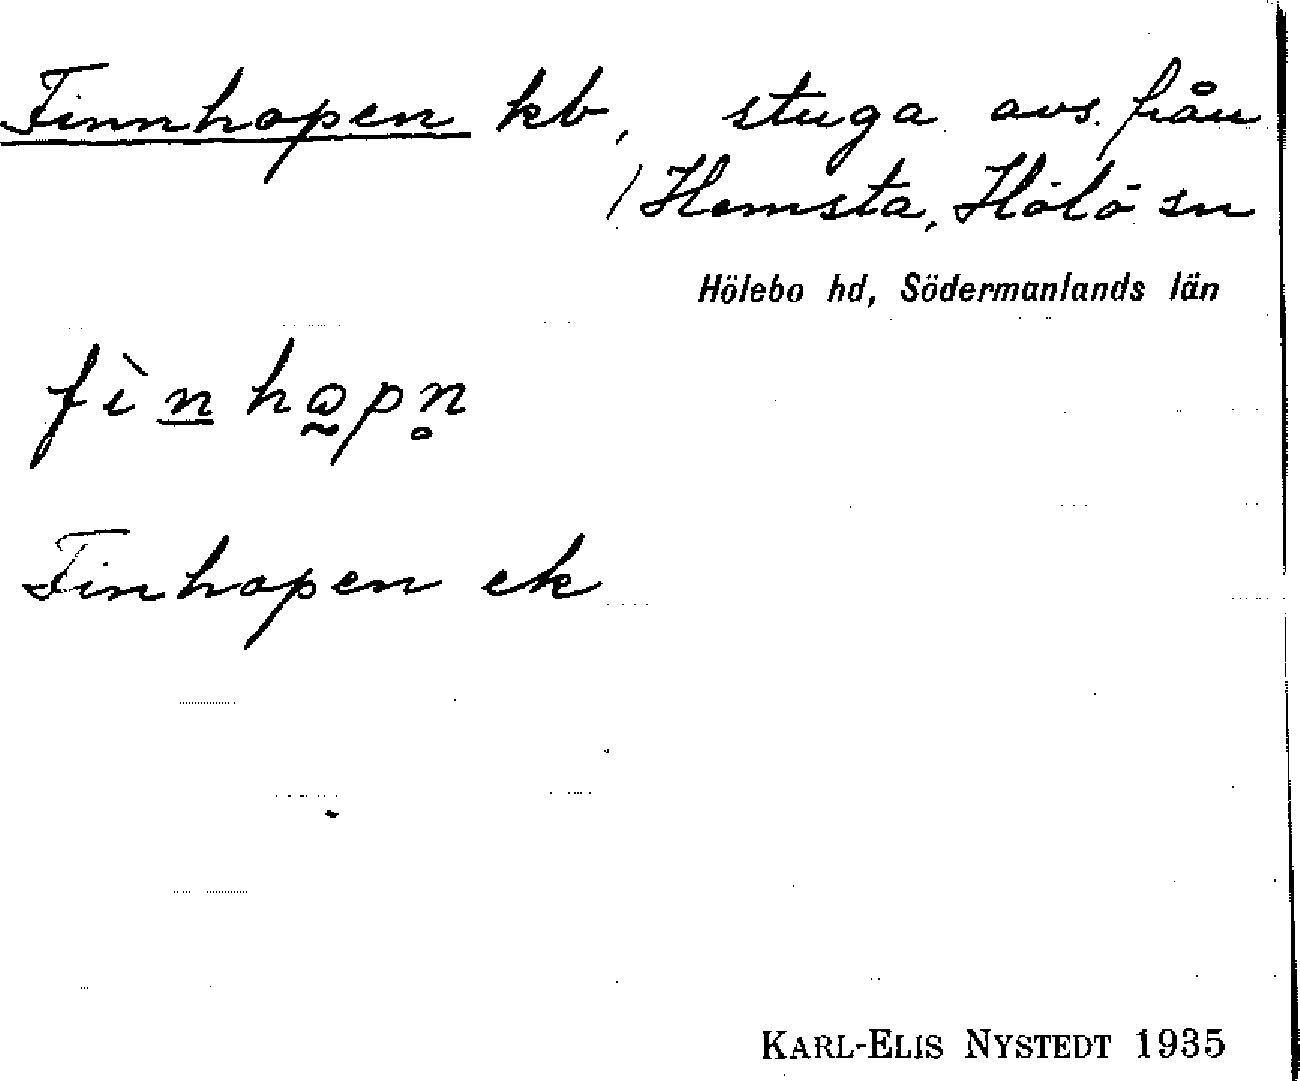 Finnhopen kb, stuga avs. från
/ Hemsta, Hölö sn
Hölebo hd, Södermanlands län
fìn̲ho̰pn̥
Finhopen ek
KARL-ELIS NYSTEDT 1935